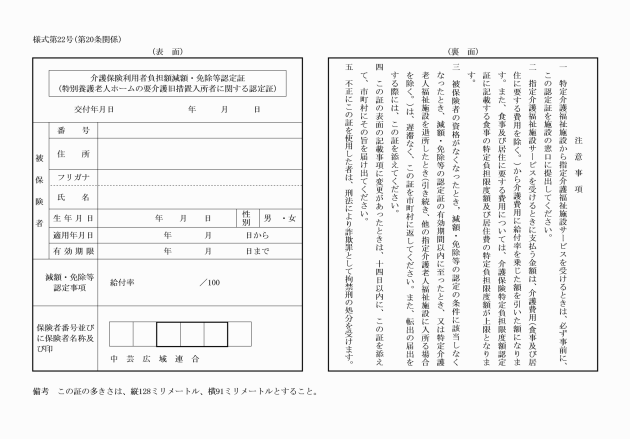 様式第22号(第20条関係)
(表　面)
介護保険利用者負担額減額・免除等認定証
(特別養護老人ホームの要介護旧措置入所者に関する認定証)
交付年月日　年　月　日
被保険者
番　号
住　所
フリガナ
氏　名
生年月日　年　月　日　性別　男・女
適用年月日　年　月　日から
有効期限　年　月　日まで
減額・免除等
認定事項
給付率　／100
保険者番号並び
に保険者名称及
び印
中芸広域連合
(裏　面)
注意事項
一　特定介護福祉施設から指定介護福祉施設サービスを受けるときは、必ず事前に、
この認定証を施設の窓口に提出してください。
二　指定介護福祉施設サービスを受けるときに支払う金額は、介護費用(食事及び居
住に要する費用を除く。)から介護費用に給付率を乗じた額を引いた額になりま
す。また、食事及び居住に要する費用については、介護保険特定負担限度額認定
証に記載する食事の特定負担限度額及び居住費の特定負担限度額が上限となりま
す。
三　被保険者の資格がなくなったとき、減額・免除等の認定の条件に該当しなく
なったとき、減額・免除等の認定証の有効期間以内に至ったとき、又は特定介護
老人福祉施設を退所したとき(引き続き、他の指定介護老人福祉施設に入所する場合
を除く。)は、遅滞なく、この証を市町村に返してください。また、転出の届出を
する際には、この証を添えてください。
四　この証の表面の記載事項に変更があったときは、十四日以内に、この証を添え
て、市町村にその旨を届け出てください。
五　不正にこの証を使用した者は、刑法により詐欺罪として拘禁刑の処分を受けます。
備考　この証の多きさは、縦128ミリメートル、横91ミリメートルとすること。